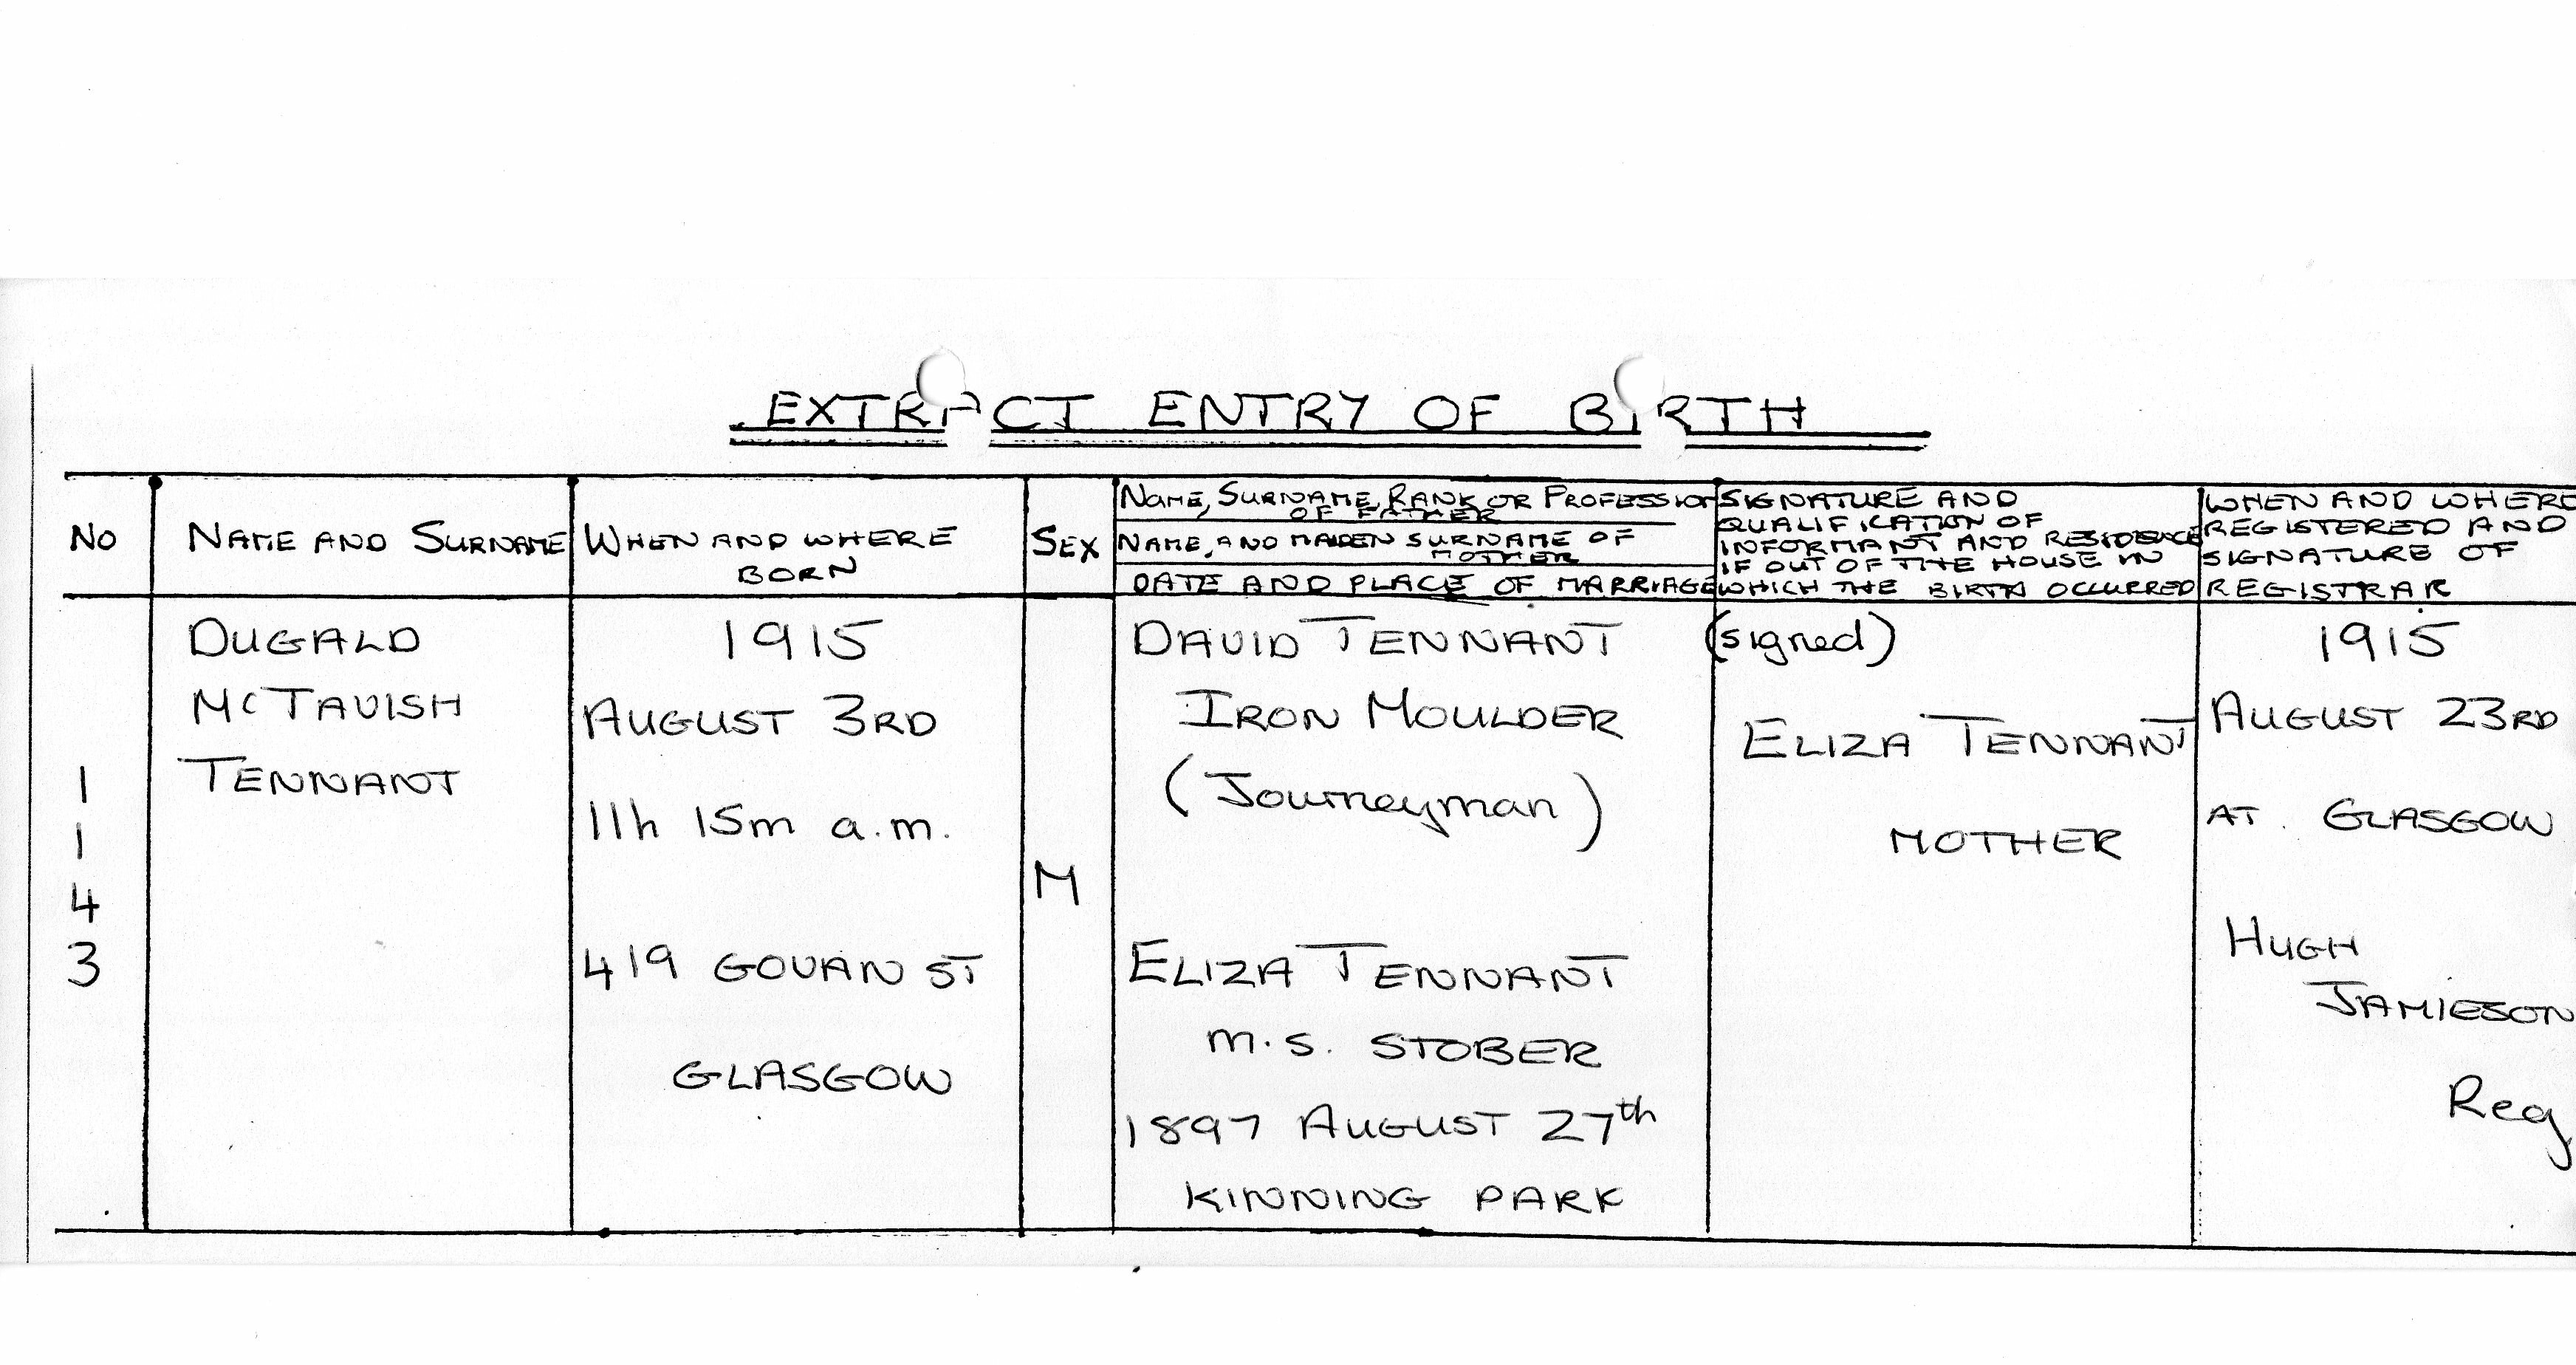 EXTRACT ENTRY OF BIRTH
No
NAME AND SURNAME
WHEN AND WHERE
BORN
SEX
NAME, SURNAME, RANK OR PROFESSION
OF FATHER
NAME, AND MAIDEN SURNAME OF
MOTHER
DATE AND PLACE OF MARRIAGE
SIGNATURE AND
QUALIFICATION OF
INFORMANT AND RESIDENCE
IF OUT OF THE HOUSE IN
WHICH THE BIRTH OCCURRED
WHEN AND WHERE
REGISTERED AND
SIGNATURE OF
REGISTRAR
1
1
4
3
DUGALD
McTAVISH
TENNANT
1915
AUGUST 3RD
11h 15m a.m.
419 GOVAN ST
GLASGOW
M
DAVID TENNANT
IRON MOULDER
(Journeyman)
ELIZA TENNANT
m.s. STOBER
1897 AUGUST 27th
KINNING PARK
(signed)
ELIZA TENNANT
MOTHER
1915
AUGUST 23RD
AT GLASGOW
HUGH
JAMIESON
Reg